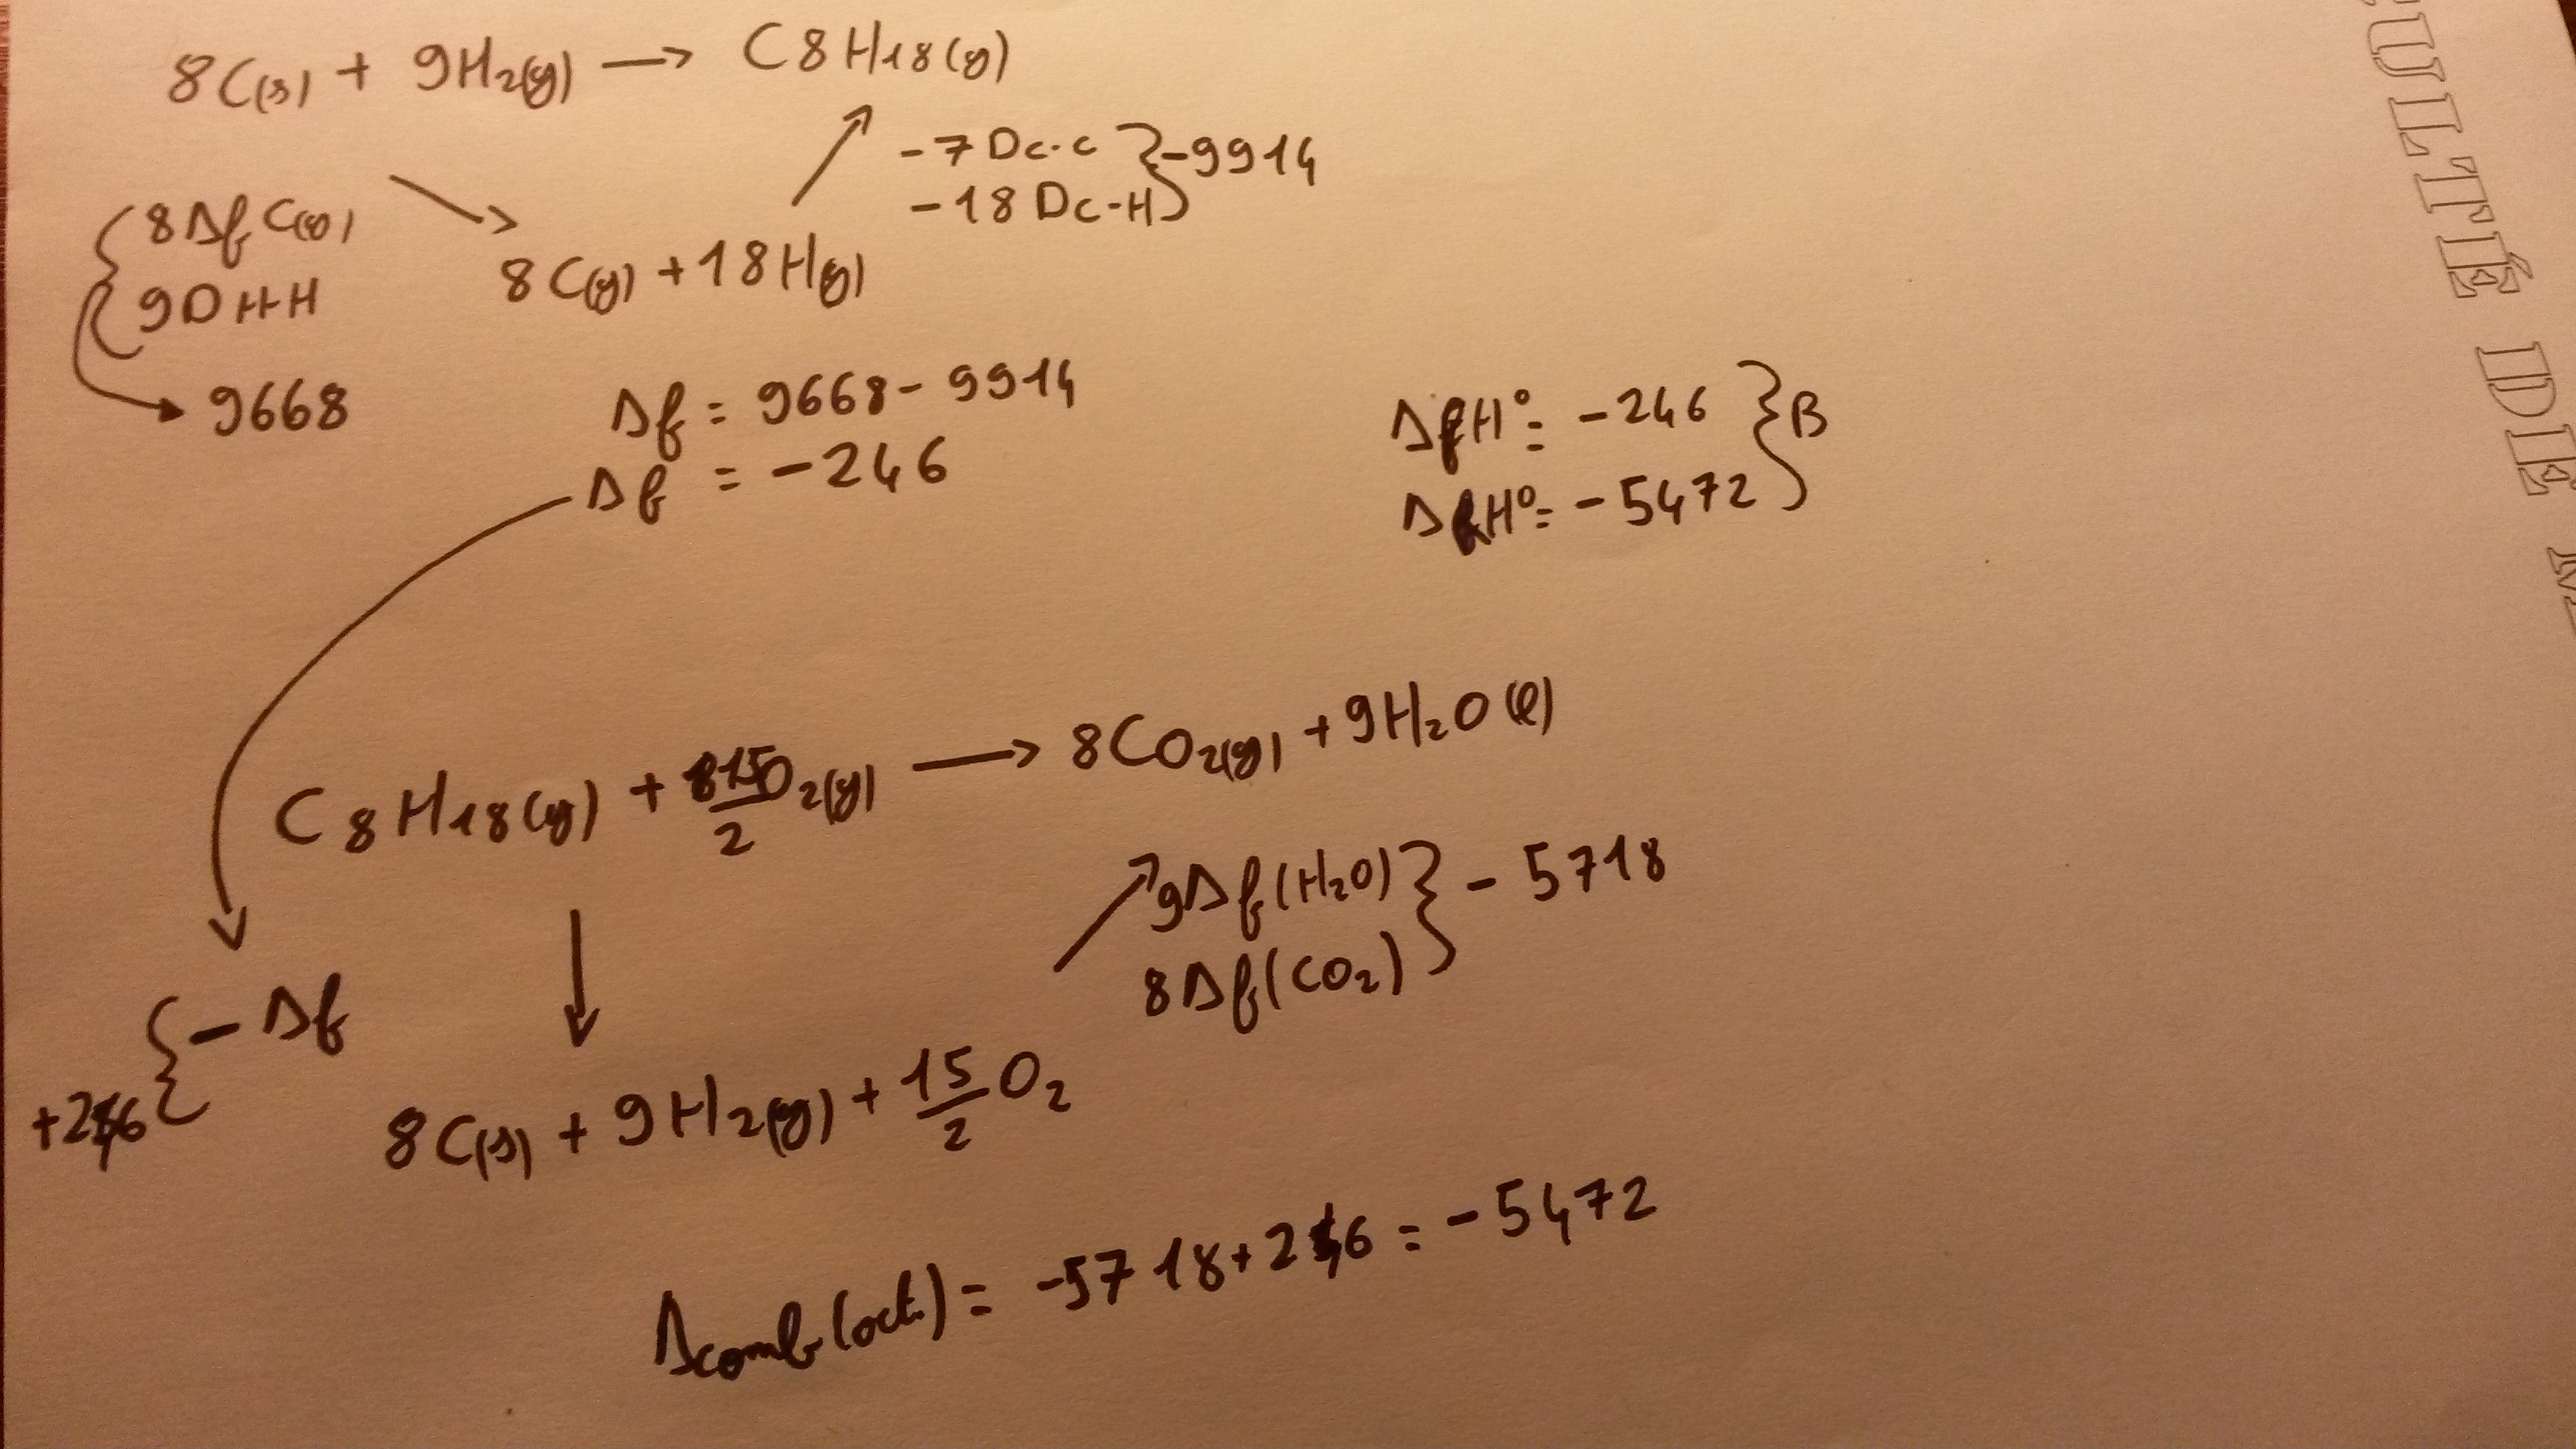 8C(s) + 9H2(g) → C8H18(g)
-7 Dc-c } -9914
-18 Dc-H
{ 8Δf C(g)
9D H-H
8C(g) + 18H(g)
→ 9668
Δf = 9668 - 9914
Δf = -246
ΔfH° = -246 } B
ΔRH° = -5472
C8H18(g) + 15/2 O2(g) → 8CO2(g) + 9H2O(l)
9Δf(H2O) } - 5718
8Δf(CO2)
{ - Δf
+246
8C(s) + 9H2(g) + 15/2 O2
Δcomb(oct.) = -5718 + 246 = -5472
ULTÉ DE